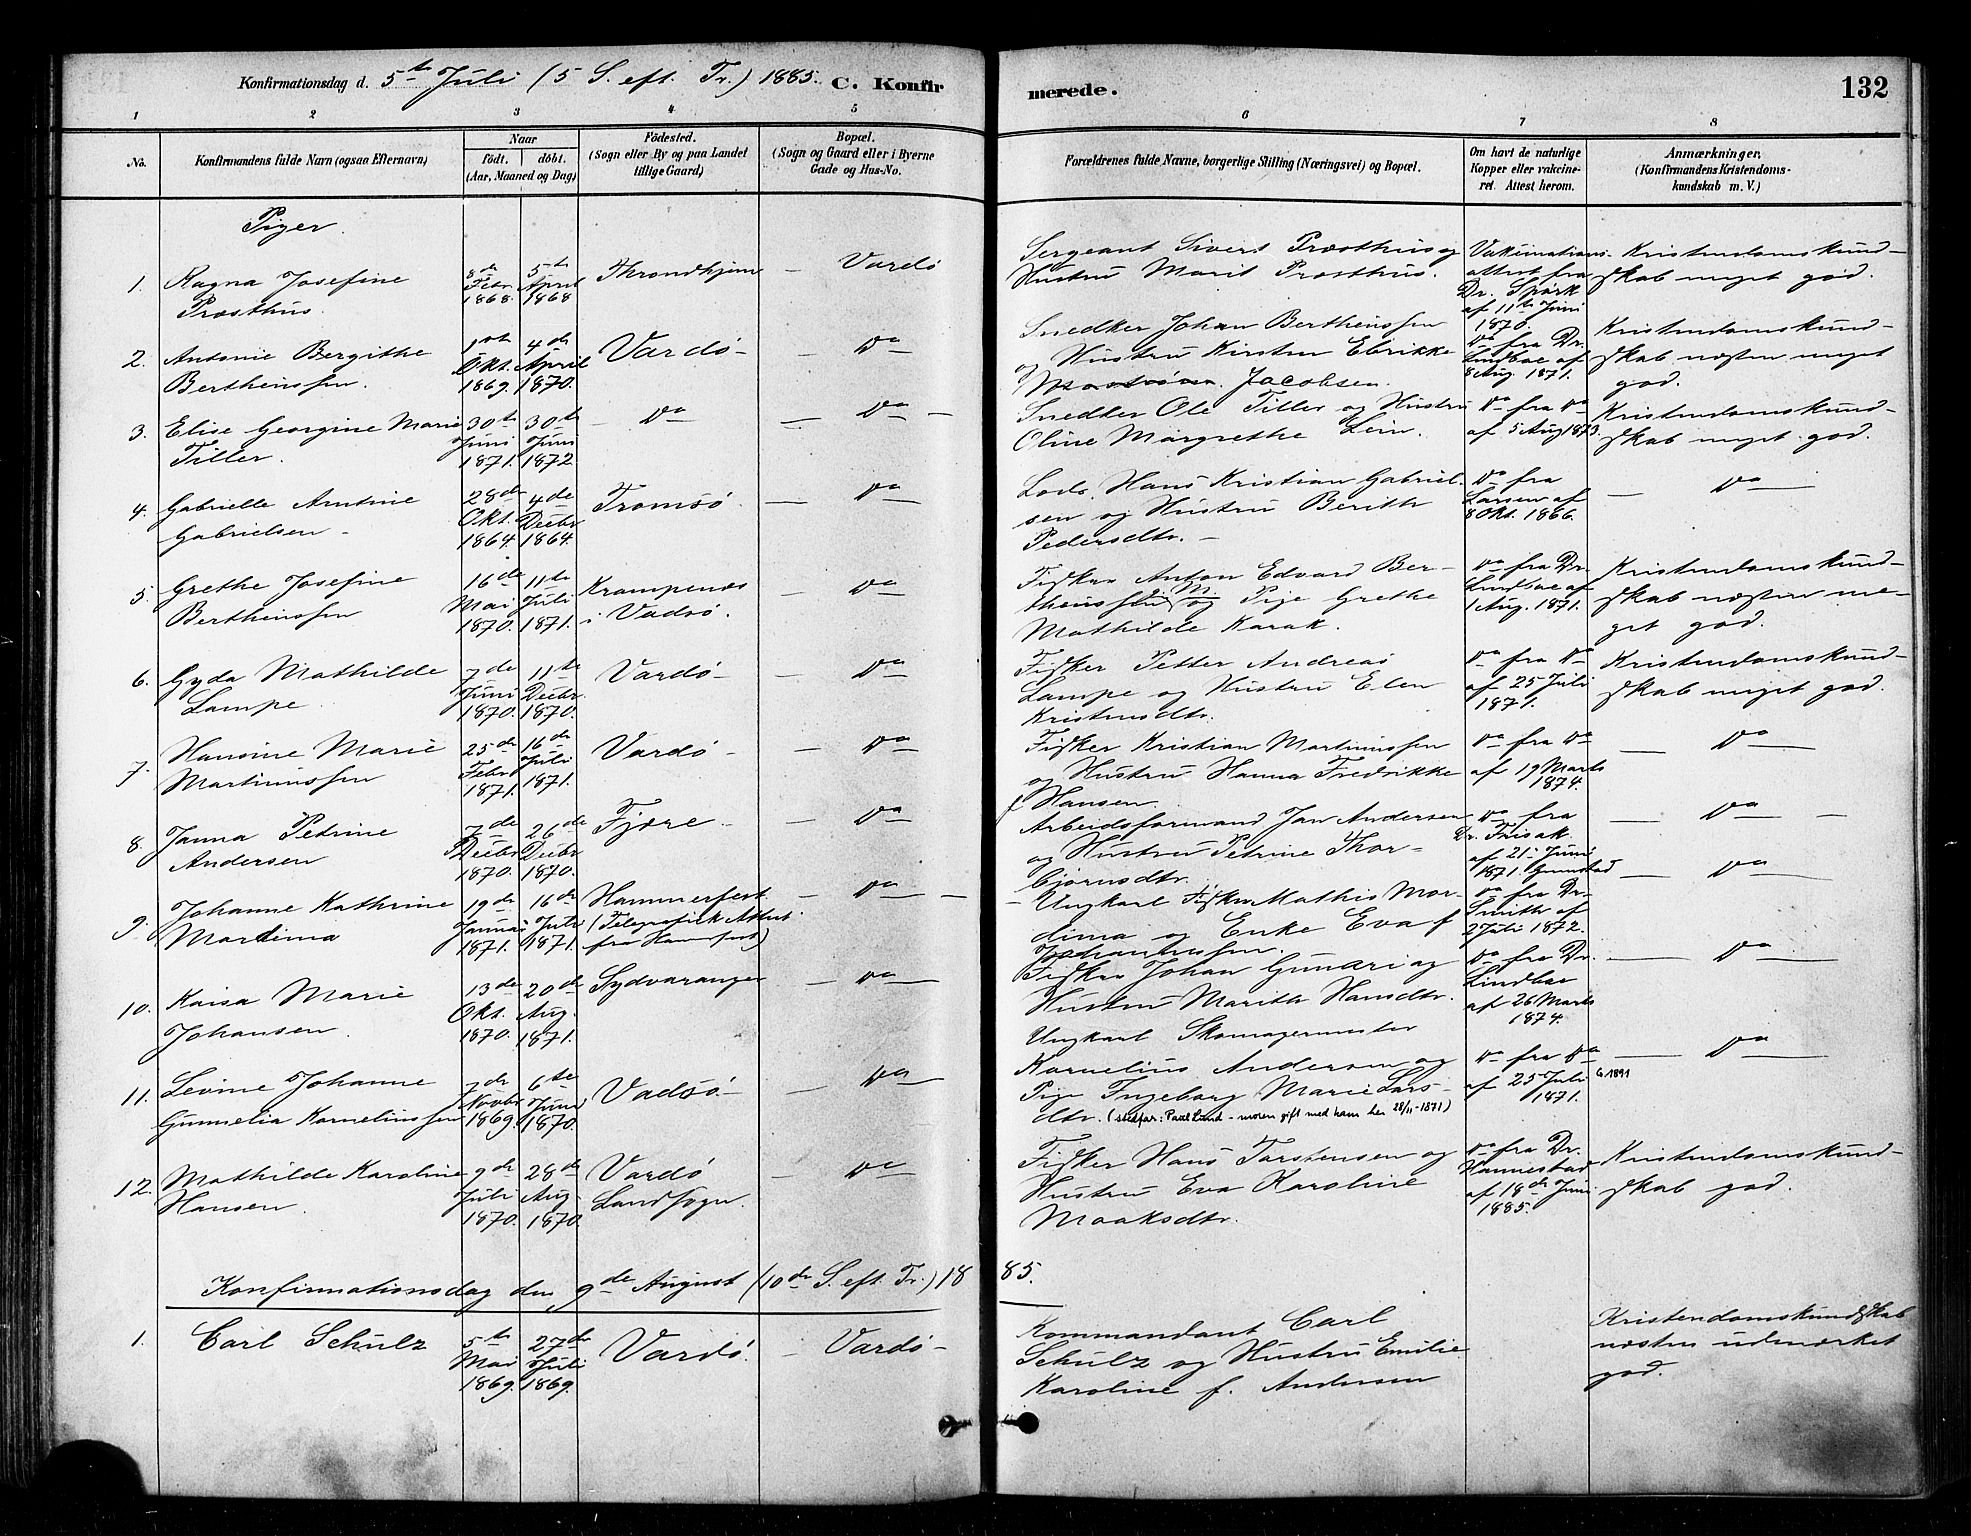 Konfirmationsdag d. 5te Juli (5 S. eft. Tr.) 1885. C. Konfirmerede. 132
1 2 3 4 5 6 7 8
No.
Konfirmandens fulde Navn (ogsaa Efternavn)
Naar
födt. döbt.
(Aar, Maaned og Dag)
Födested.
(Sogn eller By og paa Landet
tillige Gaard)
Bopæl.
(Sogn og Gaard eller i Byerne
Gade og Hus-No.
Forældrenes fulde Navne, borgerlige Stilling (Næringsvei) og Bopæl.
Om havt de naturlige
Kopper eller vakcine-
ret. Attest herom.
Anmærkninger.
(Konfirmandens Kristendoms-
kundskab m. V.)
Piger.
1. Ragna Josefine
Præsthus.
8de
Febr.
1868.
5te
April
1868
Throndhjem
— Vardö
Sergeant Sivert Præsthus og
Hustru Marit Præsthus.
Vakcinations-
attest fra
Dr. Spörk
af 11te Juni
1870.
Kristendomskund-
skab meget god.
2. Antonie Bergithe
Berthinssen.
1ste
Okt.
1869.
4de
April
1870.
Vardö —
— Do
Snedker Johan Berthinssen
og Hustru Kirsten Elrikke
Jacobsen.
Do fra Dr.
Lindboe af
8 Aug. 1871.
Kristendomskund-
skab næsten meget
god.
3. Elise Georgine Marie
Tiller.
30te
Juni
1871.
30te
Juni
1872
— Do
— Do —
Snedker Ole Tiller og Hustru
Oline Margrethe Lein.
Do fra Do
af 5 Aug 1873.
Kristendomskund-
skab meget god.
4. Gabrielle Arntine
Gabrielsen —
28de
Okt.
1864.
4de
Decbr
1864.
Tromsö
— Do
Lods. Hans Kristian Gabriel-
sen og Hustru Berith
Pedersdtr. —
Do fra
Larsen af
8 Okt. 1866.
— Do —
5. Grethe Josefine
Berthinssen
16de
Mai
1870.
11te
Juli
1871.
Krampenæs
i Vadsö.
— Do
Fisker Anton Edvard Ber-
thenssen og Pige Grethe
Mathilde Karak.
Do fra Dr.
Lindboe af
1 Aug. 1871.
Kristendomskund-
skab næsten me-
get god.
6. Gyda Mathilde
Lampe.
7de
Juni
1870.
11te
Decbr.
1870.
Vardö —
— Do
Fisker Petter Andreas
Lampe og Hustru Elen
Kristensdtr.
Do fra Do
af 25 Juli
1871.
Kristendomskund-
skab meget god.
7. Hansine Marie
Martinussen
25de
Febr
1871.
16de
Juli
1871.
Vardö —
— Do
Fisker Kristian Martinussen
og Hustru Hanna Fredrikke
f Hansen.
Do fra Do
af 19 Marts
1874.
— Do —
8. Janna Petrine
Andersen
7de
Decbr
1870.
26de
Decbr
1870.
Fjære —
— Do
Arbeidsformand Jan Andersen
og Hustru Petrine Thor-
björnsdtr.
Do fra
Dr. Frisak
af 21. Juni
1871. Grimstad
— Do —
9. Johanne Kathrine
Mardima
19de
Januar
1871.
16de
Juli
1871.
Hammerfest
(Telegrafisk Attest
fra Hamfest)
— Do —
Ungkarl Fisker Mathis Mar-
dima og Enke Eva f
Johannessen.
Do fra Dr.
Smith af
2 Juli 1872.
— Do —
10. Kaisa Marie
Johansen.
13de
Okt.
1870.
20de
Aug.
1871.
Sydvaranger
— Do
Fisker Johan Gunari og
Hustru Marith Hansdtr.
Do fra Dr.
Lindboe
af 26 Marts
1874.
— Do —
11. Levine Johanne
Gunnelia Korneliussen
7de
Novbr
1869.
6te
Juni
1870.
Vadsö —
— Do
Ungkarl Skomagermester
Kornelius Andersen og
Pige Ingeborg Marie Lars-
dtr. (stedfar: Paul Lund – moren gift med ham her 28/11-1871)
Do fra Do
af 25 Juli
1871.
G. 1891
— Do —
12. Mathilde Karoline
Hansen.
9de
Juli
1870.
28de
Aug.
1870.
Vardö
Landsogn.
— Do
Fisker Hans Torstensen og
Hustru Eva Karoline
Maaksdtr.
Do fra Dr.
Hannestad
af 18de Juni
1885.
Kristendomskund-
skab god.
Konfirmationsdag den 9de August (10de S. eft. Tr.) 1885.
1. Carl Schulz
5te
Mai
1869.
27de
Juli
1869.
Vardö.
— Vardö —
Kommandant Carl
Schulz og Hustru Emilie
Karoline f. Andersen
Kristendomskundskab
næsten udmærket
god.